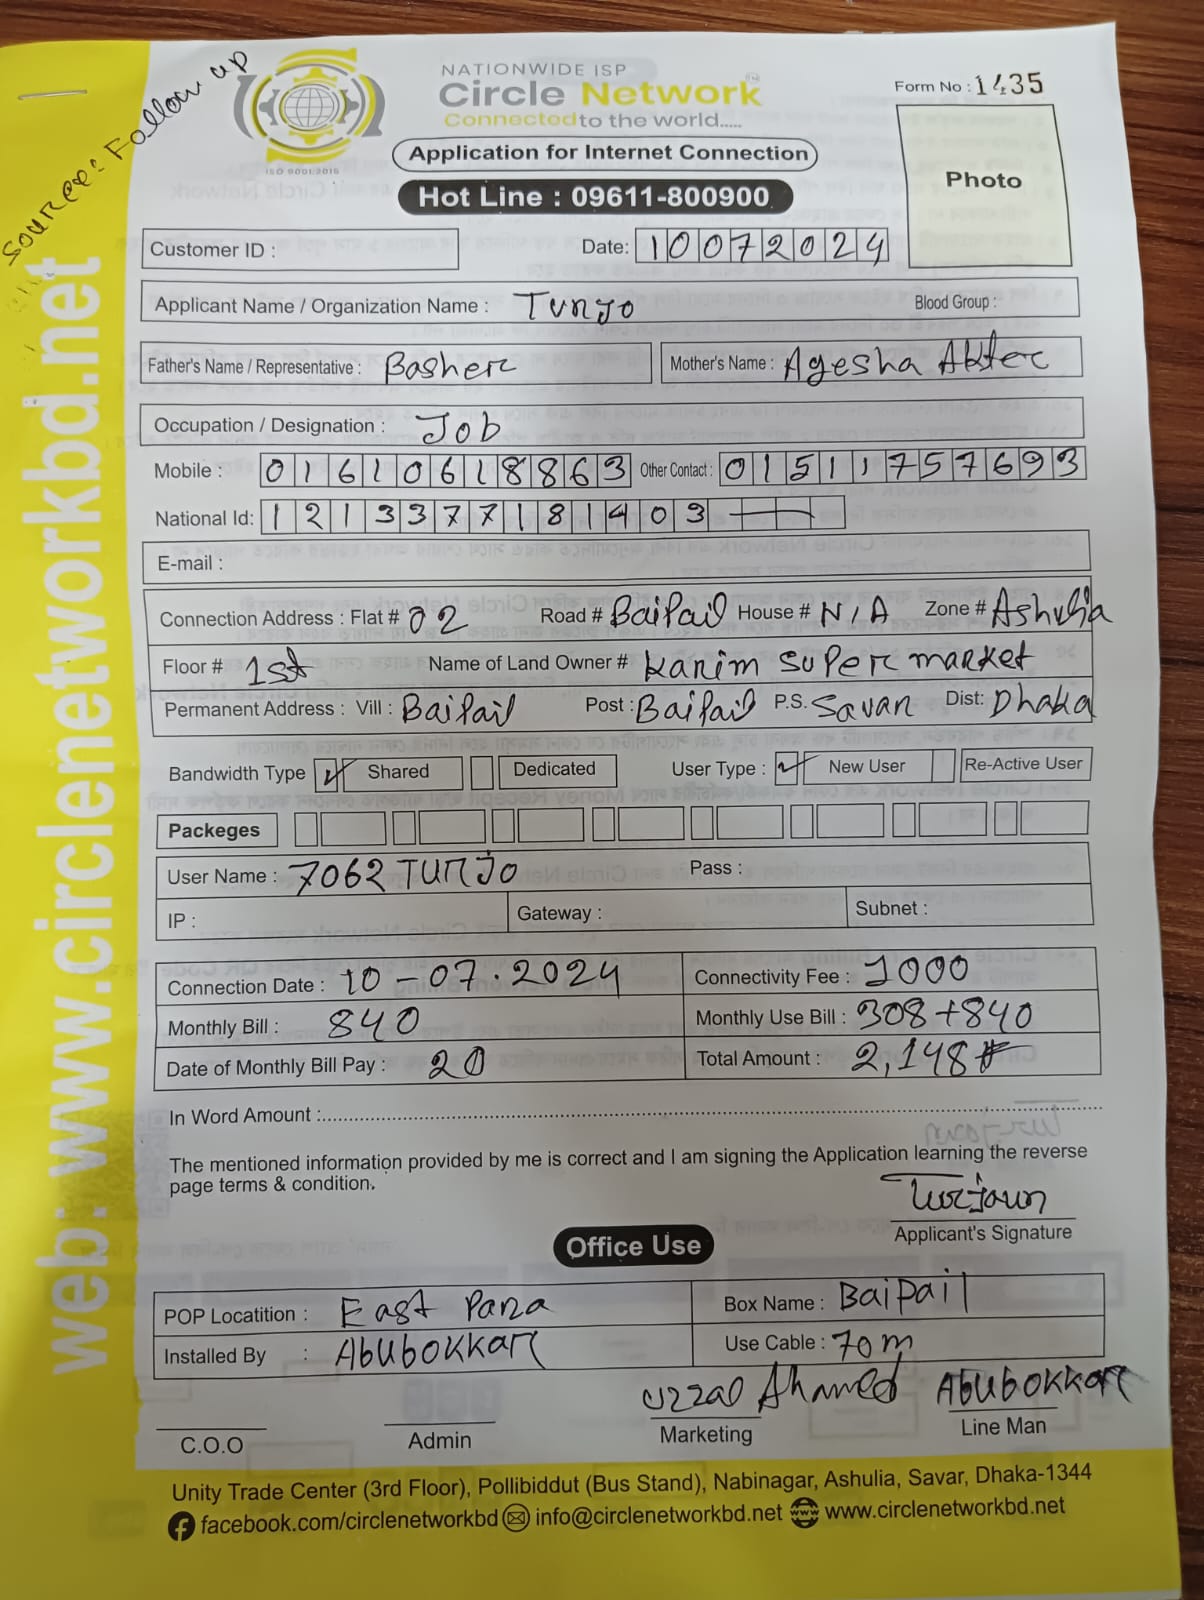 Source: Follow up
NATIONWIDE ISP
Circle Network
Connected to the world.....
ISO 9001:2015
Form No : 1435
Application for Internet Connection
Photo
Hot Line : 09611-800900
Customer ID :
Date: 10072024
Applicant Name / Organization Name : Turjo Blood Group :
Father's Name / Representative : Basher Mother's Name : Ayesha Akter
Occupation / Designation : Job
Mobile : 01610618863 Other Contact : 01511757693
National Id: 1213377181403
E-mail :
Connection Address : Flat # 02 Road # Baipail House # N/A Zone # Ashulia
Floor # 1st Name of Land Owner # Karim super market
Permanent Address : Vill : Baipail Post : Baipail P.S. Savar Dist: Dhaka
Bandwidth Type ✓ Shared Dedicated User Type : ✓ New User Re-Active User
Packeges
User Name : 7062TURJO Pass :
IP : Gateway : Subnet :
Connection Date : 10-07.2024 Connectivity Fee : 1000
Monthly Bill : 840 Monthly Use Bill : 308+840
Date of Monthly Bill Pay : 20 Total Amount : 2,148
In Word Amount :
The mentioned information provided by me is correct and I am signing the Application learning the reverse
page terms & condition.
Turjaun
Applicant's Signature
Office Use
POP Locatition : East Para Box Name : Baipail
Installed By : Abubokkar Use Cable : 70m
Uzzal Ahamed Abubokkar
C.O.O Admin Marketing Line Man
Unity Trade Center (3rd Floor), Pollibiddut (Bus Stand), Nabinagar, Ashulia, Savar, Dhaka-1344
facebook.com/circlenetworkbd info@circlenetworkbd.net www.circlenetworkbd.net
web: www.circlenetworkbd.net